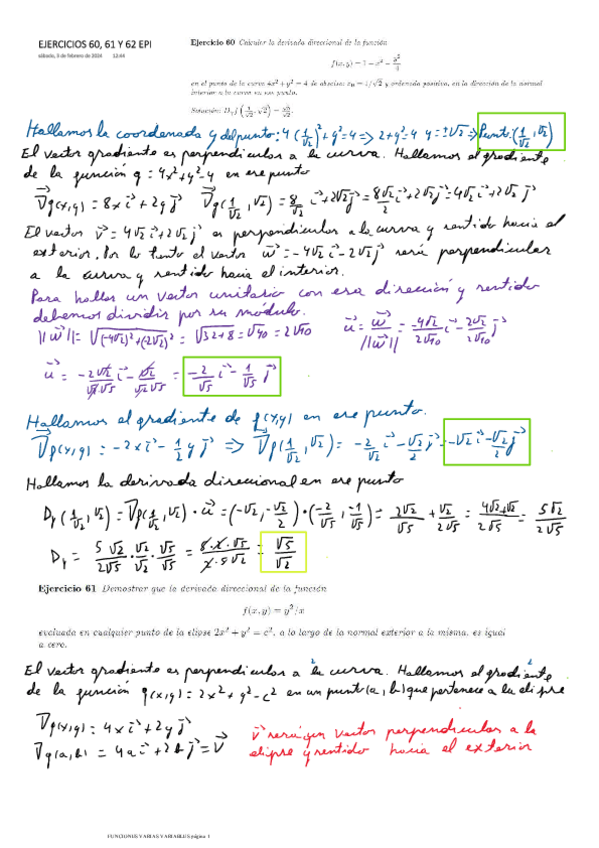 EJERCICIOS 60, 61 Y 62 EPI
sábado, 3 de febrero de 2024 12:44
Ejercicio 60 Calcular la derivada direccional de la función
f(x, y) = 1 − x² − y²/4
en el punto de la curva 4x² + y² = 4 de abscisa x₀ = 1/√2 y ordenada positiva, en la dirección de la normal
interior a la curva en ese punto.
Solución: D f(1/√2, √2) =
Hallamos la coordenada y del punto: 4(1/√2)² + y² = 4 => 2 + y² = 4 y = ±√2 => Punto: (1/√2, √2)
El vector gradiente es perpendicular a la curva. Hallamos el gradiente
de la función g = 4x² + y² − 4 en ese punto
∇g(x,y) = 8x i + 2y j ∇g(1/√2, √2) = 8/√2 i + 2√2 j = 8√2/2 i + 2√2 j = 4√2 i + 2√2 j
El vector v = 4√2 i + 2√2 j es perpendicular a la curva y sentido hacia el
exterior. Por lo tanto el vector w = −4√2 i − 2√2 j será perpendicular
a la curva y sentido hacia el interior.
Para hallar un vector unitario con esa dirección y sentido
debemos dividir por su módulo.
||w|| = √((−4√2)² + (−2√2)²) = √(32+8) = √40 = 2√10 u = w/||w|| = −4√2/2√10 i − 2√2/2√10 j
u = −2√2/√2√5 i − √2/√2√5 j = −2/√5 i − 1/√5 j
Hallamos el gradiente de f(x,y) en ese punto.
∇f(x,y) = −2x i − 1/2 y j => ∇f(1/√2, √2) = −2/√2 i − √2/2 j = −√2 i − √2/2 j
Hallamos la derivada direccional en ese punto
Df(1/√2, √2) = ∇f(1/√2, √2) · u = (−√2, −√2/2) · (−2/√5, −1/√5) = 2√2/√5 + √2/2√5 = 4√2+√2/2√5 = 5√2/2√5
Df = 5√2/2√5 · √2/√2 · √5/√5 = 5·2·√5/2·5√2 = √5/√2
Ejercicio 61 Demostrar que la derivada direccional de la función
f(x, y) = y²/x
evaluada en cualquier punto de la elipse 2x² + y² = c², a lo largo de la normal exterior a la misma, es igual
a cero.
El vector gradiente es perpendicular a la curva. Hallamos el gradiente
de la función g(x,y) = 2x² + y² − c² en un punto (a, b) que pertenece a la elipse
∇g(x,y) = 4x i + 2y j
∇g(a,b) = 4a i + 2b j = v
v será un vector perpendicular a la
elipse y sentido hacia el exterior
FUNCIONES VARIAS VARIABLES página 1